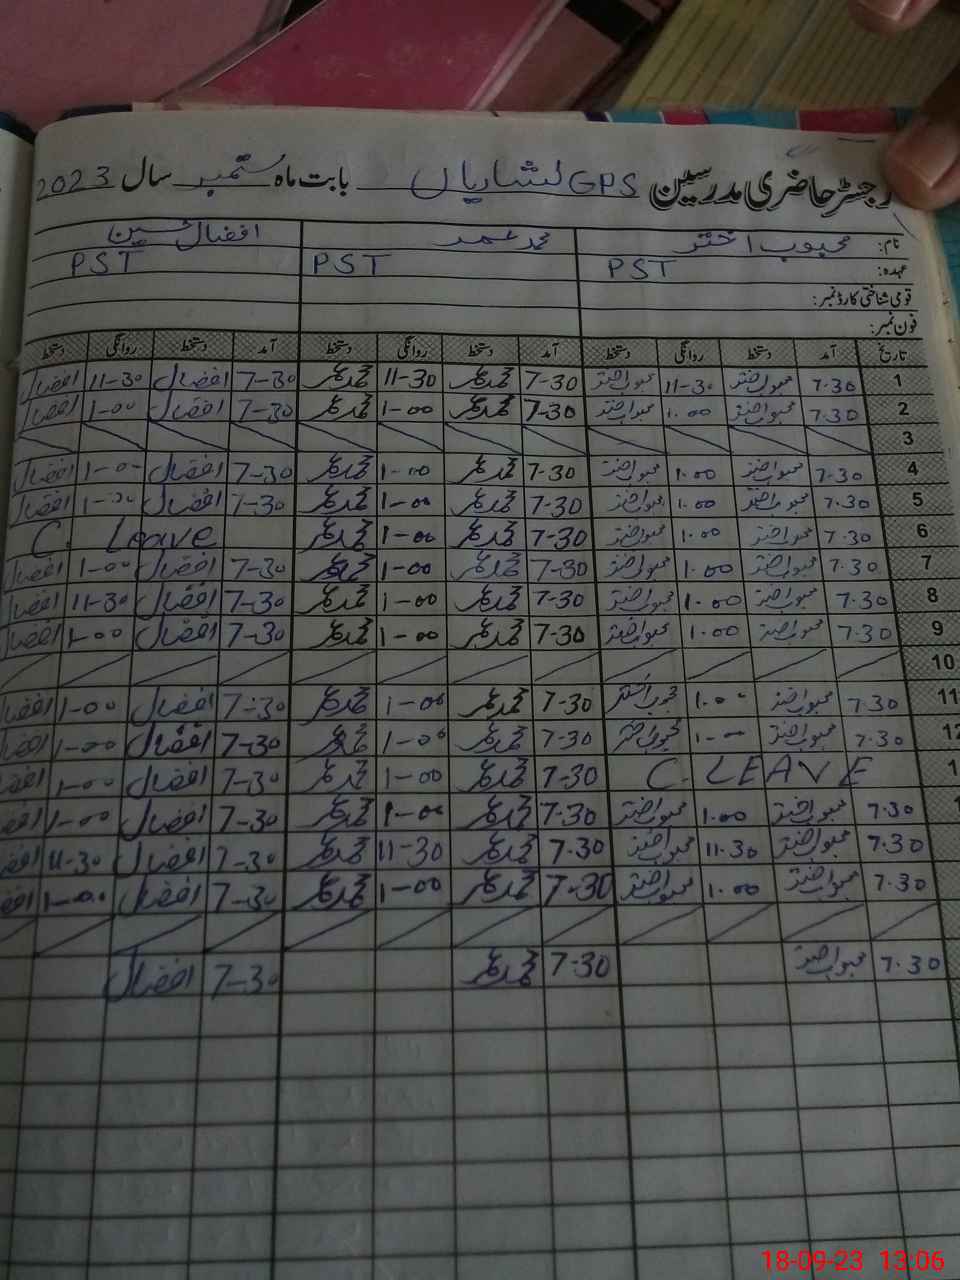 رجسٹر حاضری مدرسین GPS لشاریاں بابت ماہ ستمبر سال 2023
نام: محبوب اختر محمد عمر افضال حسین
عہدہ: PST PST PST
قومی شناختی کارڈ نمبر:
فون نمبر:
تاریخ آمد دستخط روانگی دستخط آمد دستخط روانگی دستخط آمد دستخط روانگی دستخط
1 7.30 محبوب اختر 11-30 محبوب اختر 7-30 محمد عمر 11-30 محمد عمر 7-30 افضال 11-30 افضال
2 7.30 محبوب اختر 1.00 محبوب اختر 7-30 محمد عمر 1-00 محمد عمر 7-30 افضال 1-00 افضال
3
4 7-30 محبوب اختر 1.00 محبوب اختر 7-30 محمد عمر 1-00 محمد عمر 7-30 افضال 1-00 افضال
5 7.30 محبوب اختر 1.00 محبوب اختر 7-30 محمد عمر 1-00 محمد عمر 7-30 افضال 1-00 افضال
6 7.30 محبوب اختر 1.00 محبوب اختر 7-30 محمد عمر 1-00 محمد عمر C. Leave
7 7.30 محبوب اختر 1.00 محبوب اختر 7-30 محمد عمر 1-00 محمد عمر 7-30 افضال 1-00 افضال
8 7.30 محبوب اختر 1.00 محبوب اختر 7-30 محمد عمر 1-00 محمد عمر 7-30 افضال 11-30 افضال
9 7.30 محبوب اختر 1.00 محبوب اختر 7-30 محمد عمر 1-00 محمد عمر 7-30 افضال 1-00 افضال
10
11 7.30 محبوب اختر 1.00 محبوب اختر 7-30 محمد عمر 1-00 محمد عمر 7-30 افضال 1-00 افضال
12 7.30 محبوب اختر 1-00 محبوب اختر 7-30 محمد عمر 1-00 محمد عمر 7-30 افضال 1-00 افضال
1 C. LEAVE 7-30 محمد عمر 1-00 محمد عمر 7-30 افضال 1-00 افضال
1 7.30 محبوب اختر 1.00 محبوب اختر 7-30 محمد عمر 1-00 محمد عمر 7-30 افضال 1-00 افضال
7.30 محبوب اختر 11.30 محبوب اختر 7.30 محمد عمر 11-30 محمد عمر 7-30 افضال 11-30 افضال
7.30 محبوب اختر 1.00 محبوب اختر 7-30 محمد عمر 1-00 محمد عمر 7-30 افضال 1-00 افضال
7.30 محبوب اختر 7-30 محمد عمر 7-30 افضال
18-09-23 13:06